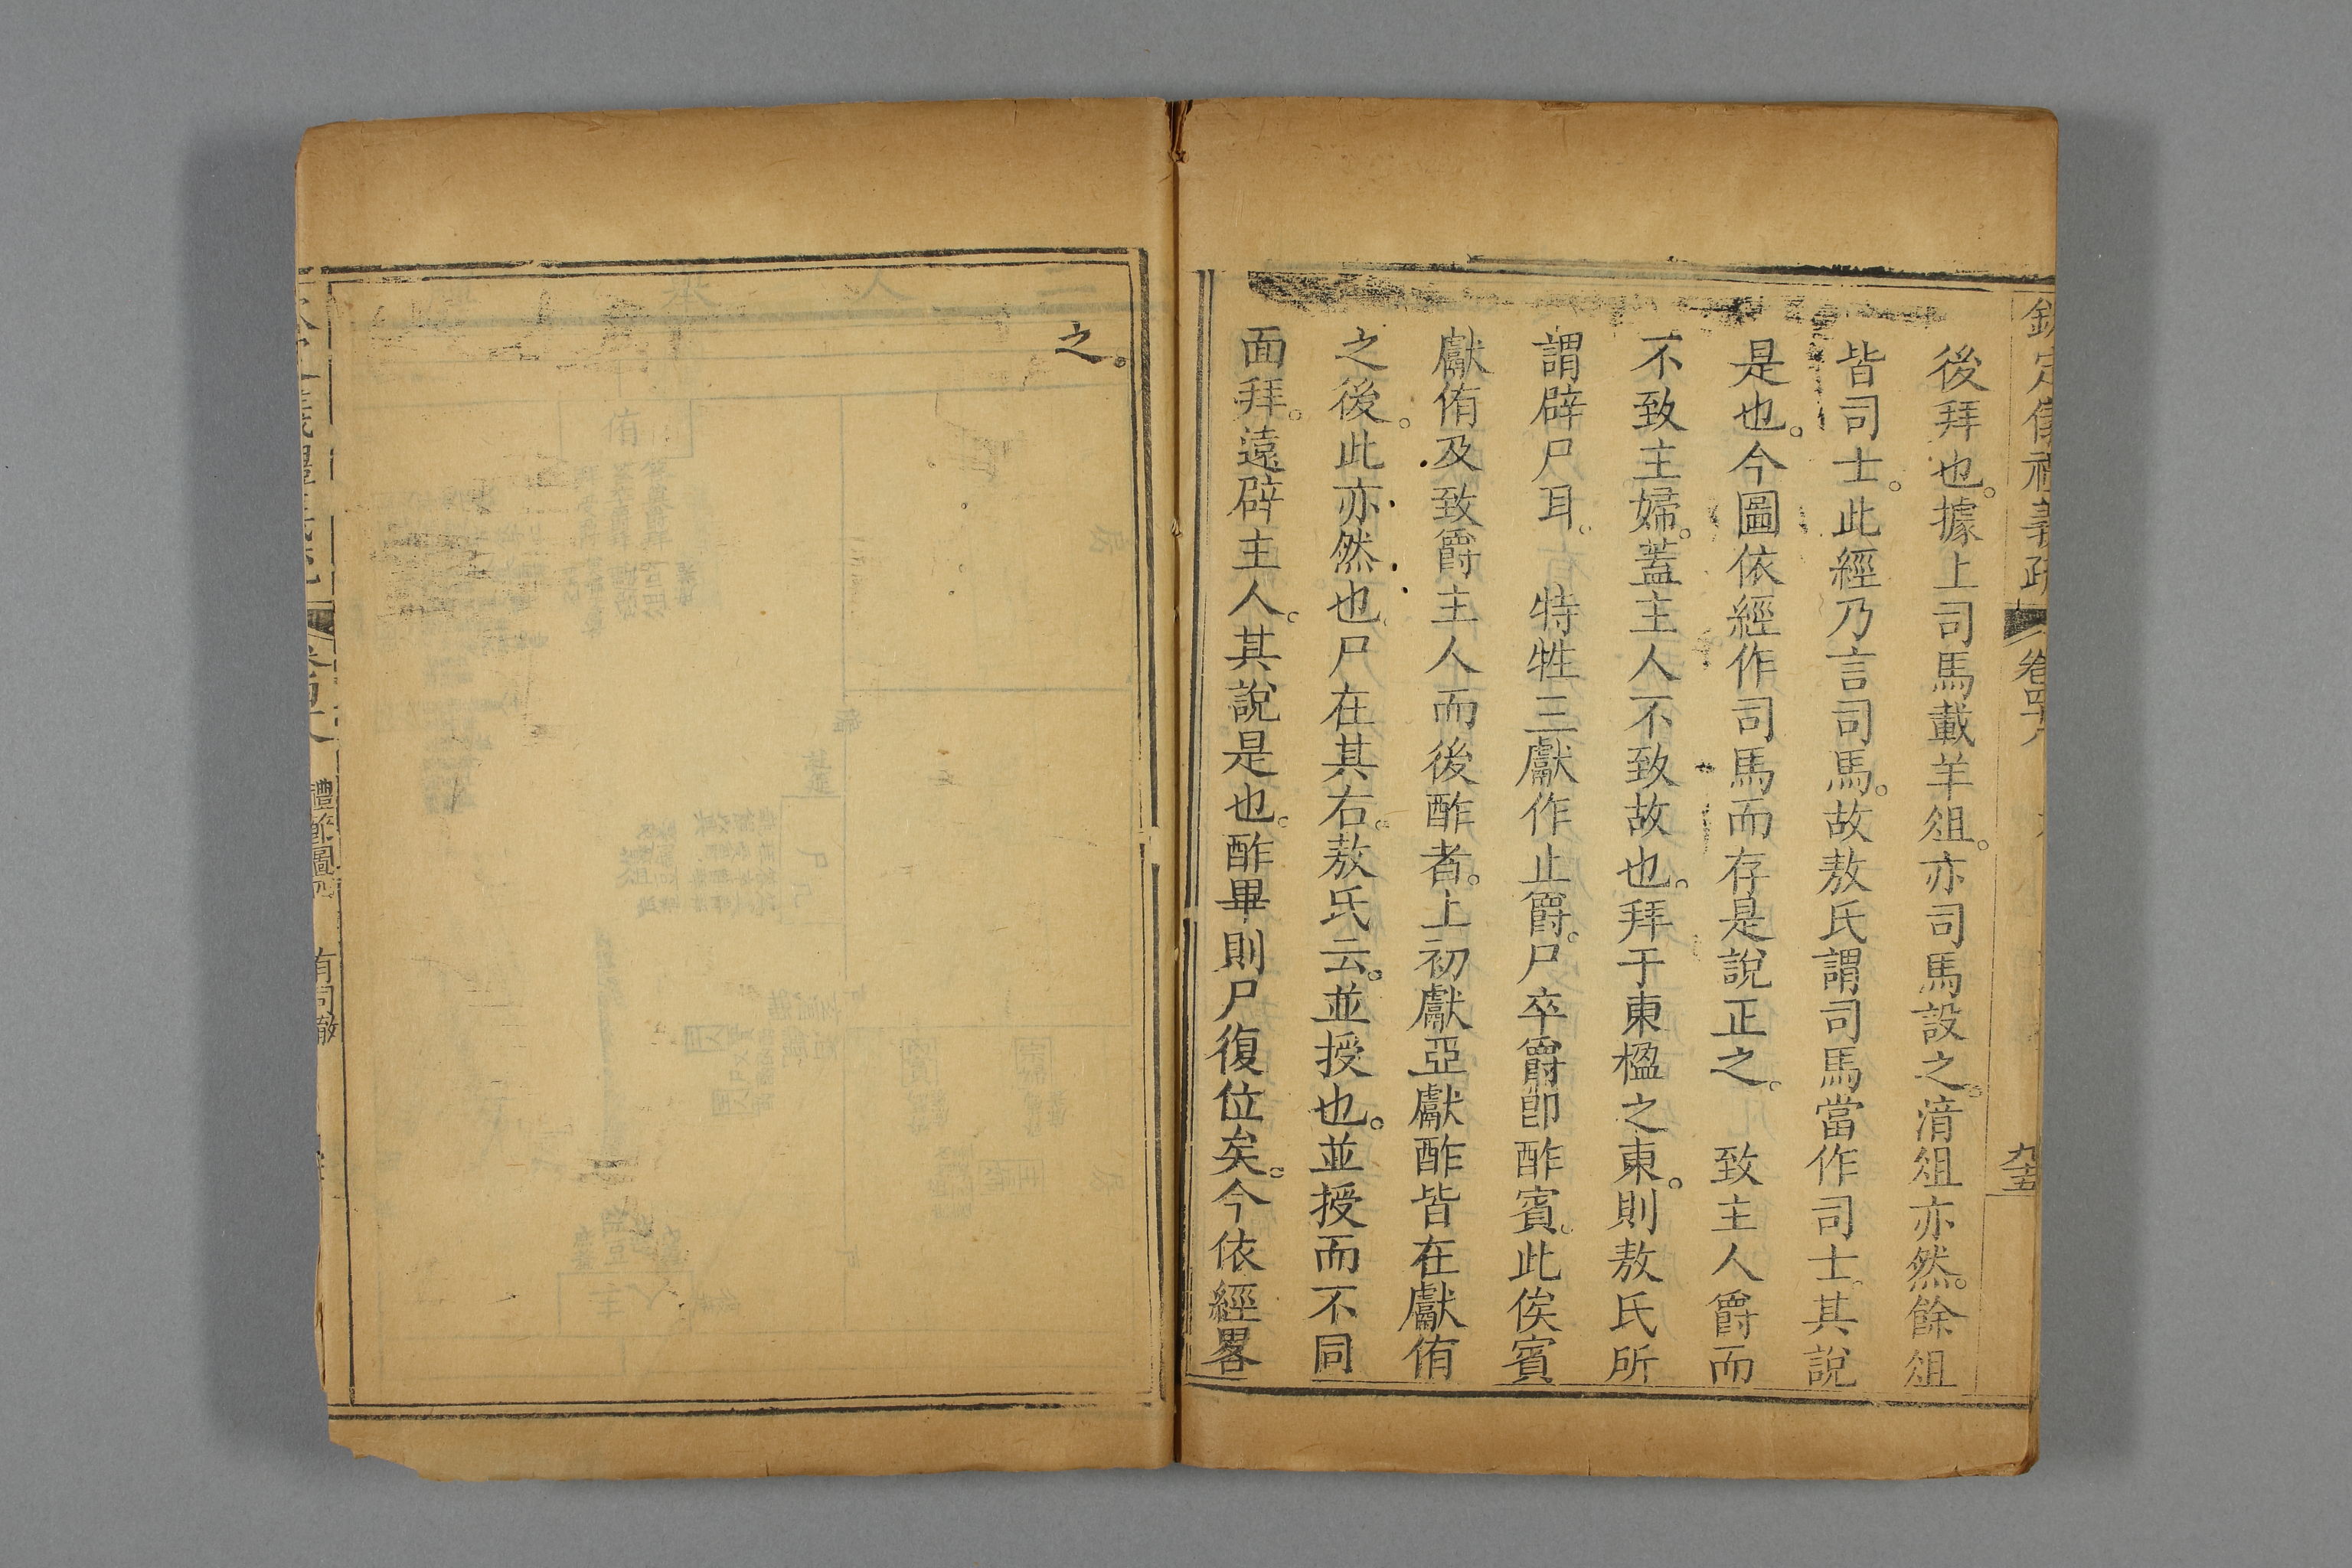 後拜也。據上司馬載羊俎。亦司馬設之。湆俎亦然。餘俎
皆司士。此經乃言司馬。故敖氏謂司馬當作司士。其說
是也。今圖依經作司馬而存是說正之。　致主人爵而
不致主婦。蓋主人不致故也。拜于東楹之東。則敖氏所
謂辟尸耳。　特牲三獻作止爵。尸卒爵卽酢賓。此俟賓
獻侑及致爵主人而後酢者。上初獻亞獻酢皆在獻侑
之後。此亦然也。尸在其右。敖氏云。並授也。並授而不同
面拜。遠辟主人。其說是也。酢畢則尸復位矣。今依經畧
之。
禮節圖四　有司徹